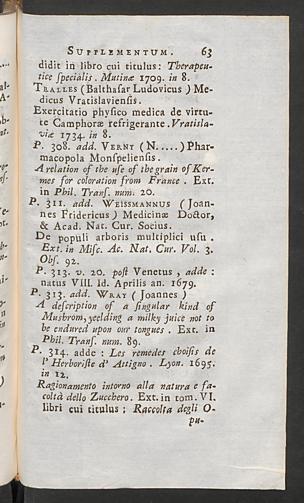 SUPPLEMENTUM. 63
didit in libro cui titulus: Therapeu-
tice specialis. Mutinæ 1709. in 8.
TRALLES (Balthasar Ludovicus) Me-
dicus Vratislaviensis.
Exercitatio physico medica de virtu-
te Camphoræ refrigerante. Vratisla-
viæ 1734. in 8.
P. 308. add. VERNY (N.....) Phar-
macopola Monspeliensis.
A relation of the use of the grain of Ker-
mes for coloration from France. Ext.
in Phil. Trans. num. 20.
P. 311. add. WEISSMANNUS (Joan-
nes Fridericus) Medicinæ Doctor,
& Acad. Nat. Cur. Socius.
De populi arboris multiplici usu.
Ext. in Misc. Ac. Nat. Cur. Vol. 3.
Obs. 92.
P. 313. v. 20. post Venetus, adde:
natus VIII. Id. Aprilis an. 1679.
P. 313. add. WRAY (Joannes)
A description of a singular kind of
Mushrom, yeelding a milky juice not to
be endured upon our tongues. Ext. in
Phil. Trans. num. 89.
P. 314. adde: Les remedes choisis de
l'Herboriste d'Attigno. Lyon. 1695.
in 12.
Ragionamento intorno alla natura e fa-
coltà dello Zucchero. Ext. in tom. VI.
libri cui titulus: Raccolta degli O-
pu-